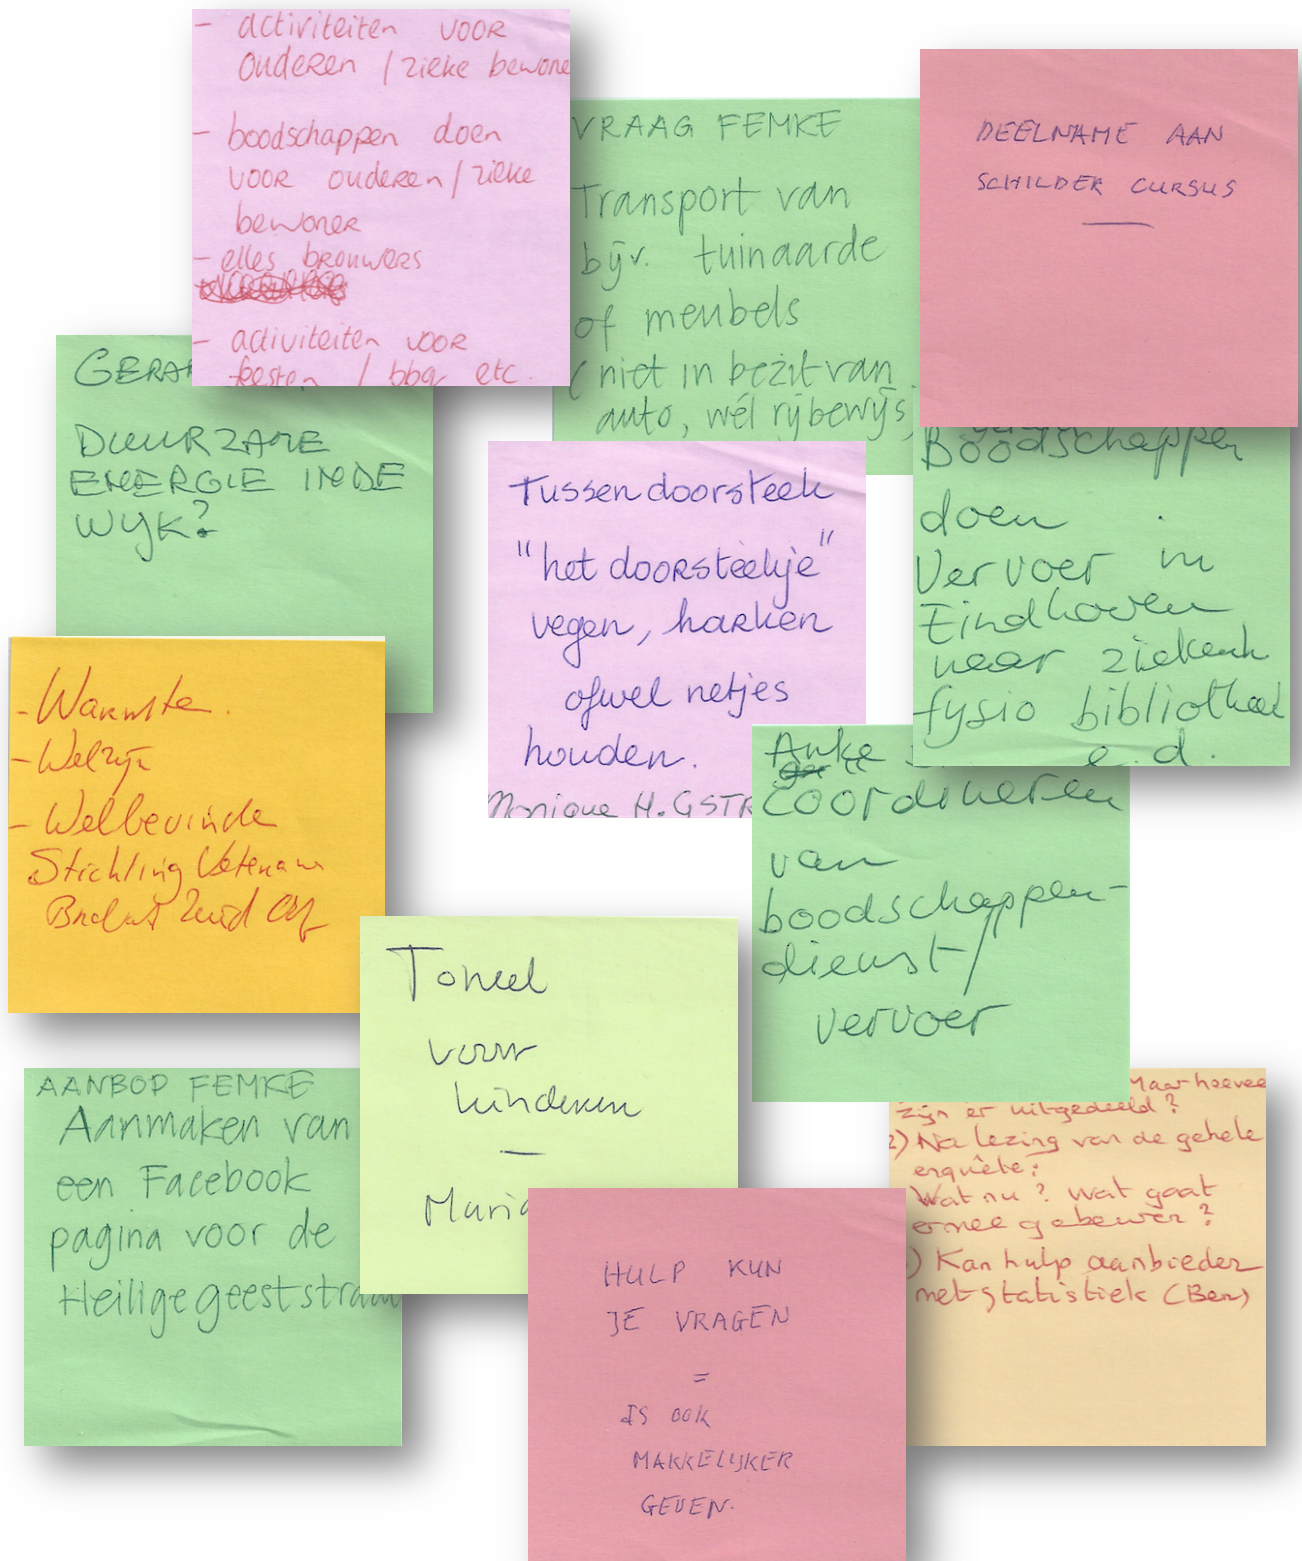 - activiteiten voor
ouderen / zieke bewone
- boodschappen doen
voor ouderen / zieke
bewoner
- elles brouwers
- activiteiten voor
feesten / bbq etc.
VRAAG FEMKE
Transport van
bijv. tuinaarde
of meubels
( niet in bezit van
auto, wél rijbewijs)
DEELNAME AAN
SCHILDER CURSUS
GERAR
DUURZAME
ENERGIE IN DE
WIJK?
Tussendoorsteek
"het doorsteekje"
vegen, harken
ofwel netjes
houden.
Monique H. GSTR
Boodschappen
doen
Vervoer in
Eindhoven
naar ziekenh
fysio bibliotheek
e.d.
- Warmte.
- Welzijn
- Welbevinde
Stichting Veteraan
Brabant Zuid Oost
Anke
coördineren
van
boodschappen-
dienst/
vervoer
Toneel
voor
kinderen
Maria
AANBOD FEMKE
Aanmaken van
een Facebook
pagina voor de
Heilige geeststraat
Maar hoevee
zijn er uitgedeeld?
2) Na lezing van de gehele
enquête:
Wat nu? Wat gaat
ermee gebeuren?
) Kan hulp aanbieden
met statistiek (Ben)
HULP KUN
JE VRAGEN
=
IS OOK
MAKKELIJKER
GEVEN.